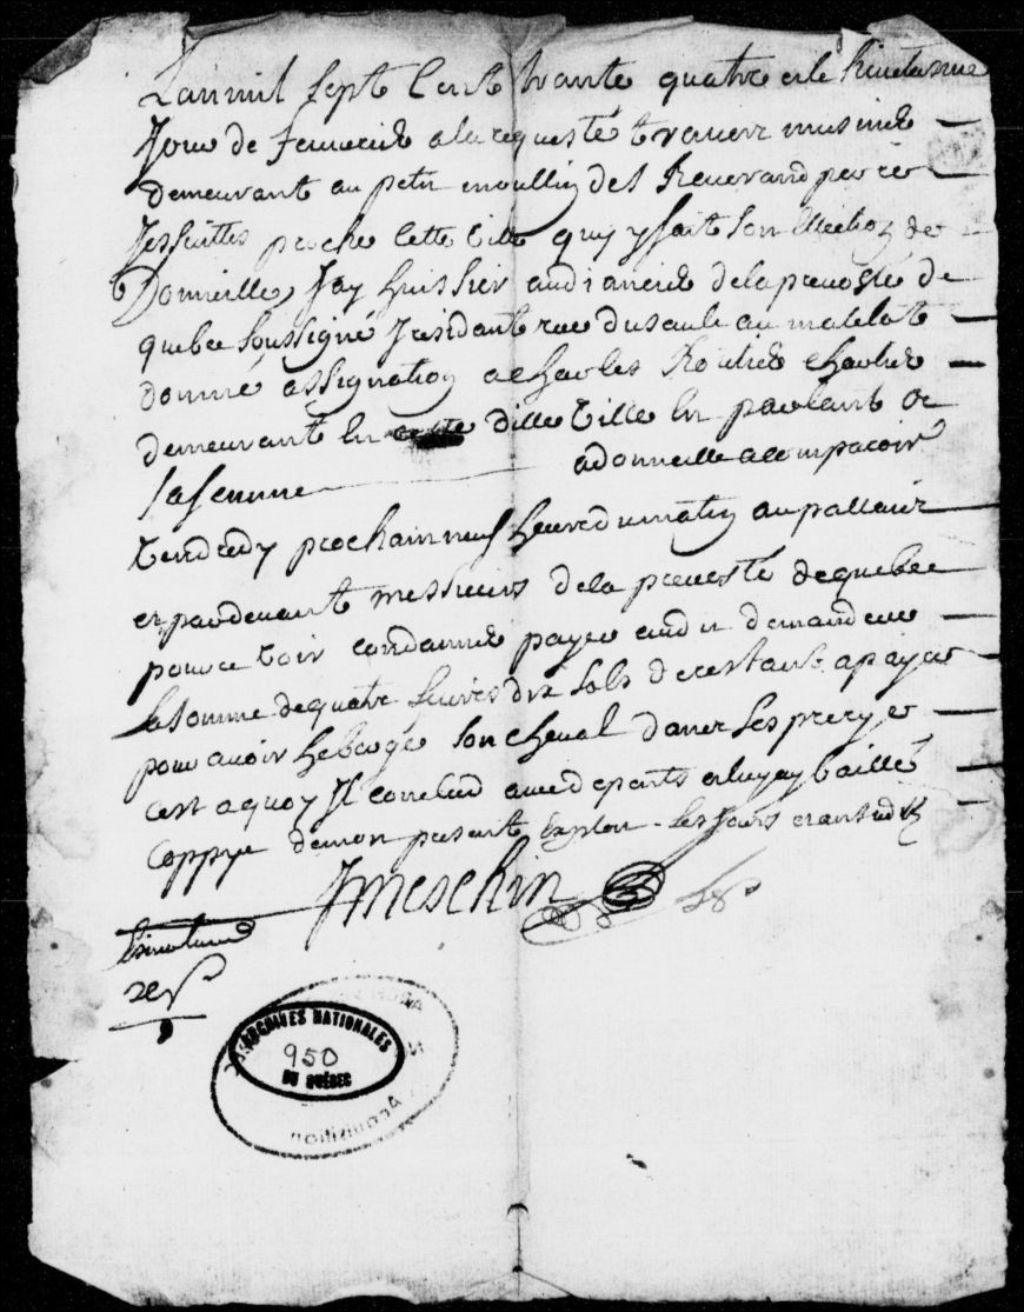 Lan mil sept Cent trante quatre et le huictiesme
Jour de feuvrier a la requeste
demeurant au petit moullin des Reuerand peres
Jessuittes proche cette Ville quy y fait son Election de
Domicille, Jay huissier audiancier de la preuosté de
quebec soussigné Residant rue du sault au matelots
donné assignation a Charles Routier Chartier
demeurant en cette ditte Ville en parlant a
sa femme a domicille a comparoir
Vendredy prochain neuf heure du matin au pallais
et pardeuant messieurs de la preuosté de quebec
pour ce Voir condamner payer audit demandeur
la somme de quatre liures dix sols de restant a payer
pour auoir hebergé son cheval
cest a quoy Il conclud auec depants et luy ay baillé
Coppye de mon present Exploit les jours et an susdit
Jmeschin
ARCHIVES NATIONALES
950
DU QUÉBEC